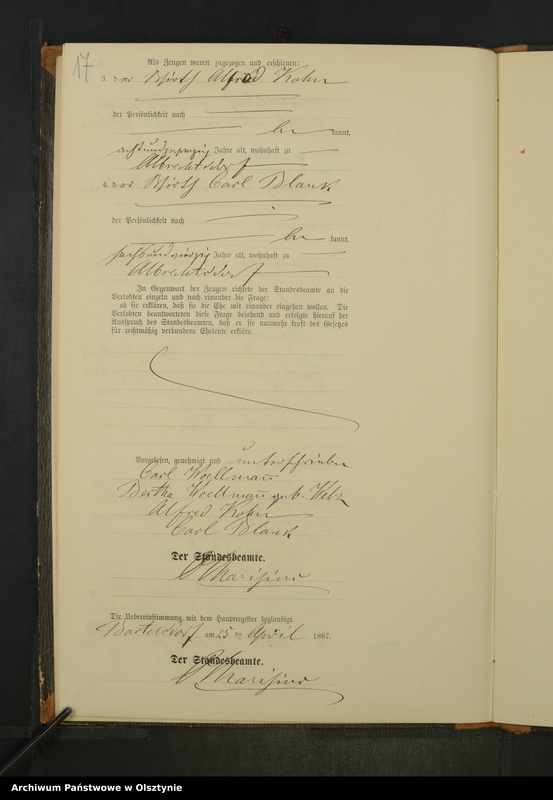 17
Als Zeugen waren zugezogen und erschienen:
3. der Wirth Alfred Kohn
der Persönlichkeit nach
be kannt,
achtundzwanzig Jahre alt, wohnhaft zu
Albrechtsdorf
4. der Wirth Carl Blank
der Persönlichkeit nach
be kannt,
sechsundvierzig Jahre alt, wohnhaft zu
Albrechtsdorf
In Gegenwart der Zeugen richtete der Standesbeamte an die
Verlobten einzeln und nach einander die Frage:
ob sie erklären, daß sie die Ehe mit einander eingehen wollen. Die
Verlobten beantworteten diese Frage bejahend und erfolgte hierauf der
Ausspruch des Standesbeamten, daß er sie nunmehr kraft des Gesetzes
für rechtmäßig verbundene Eheleute erkläre.
Vorgelesen, genehmigt und unterschrieben
Carl Woellmann
Bertha Woellmann geb.
Alfred Kohn
Carl Blank
Der Standesbeamte.
Die Uebereinstimmung mit dem Hauptregister beglaubigt.
am 25 ten April 1887.
Der Standesbeamte.
Archiwum Państwowe w Olsztynie